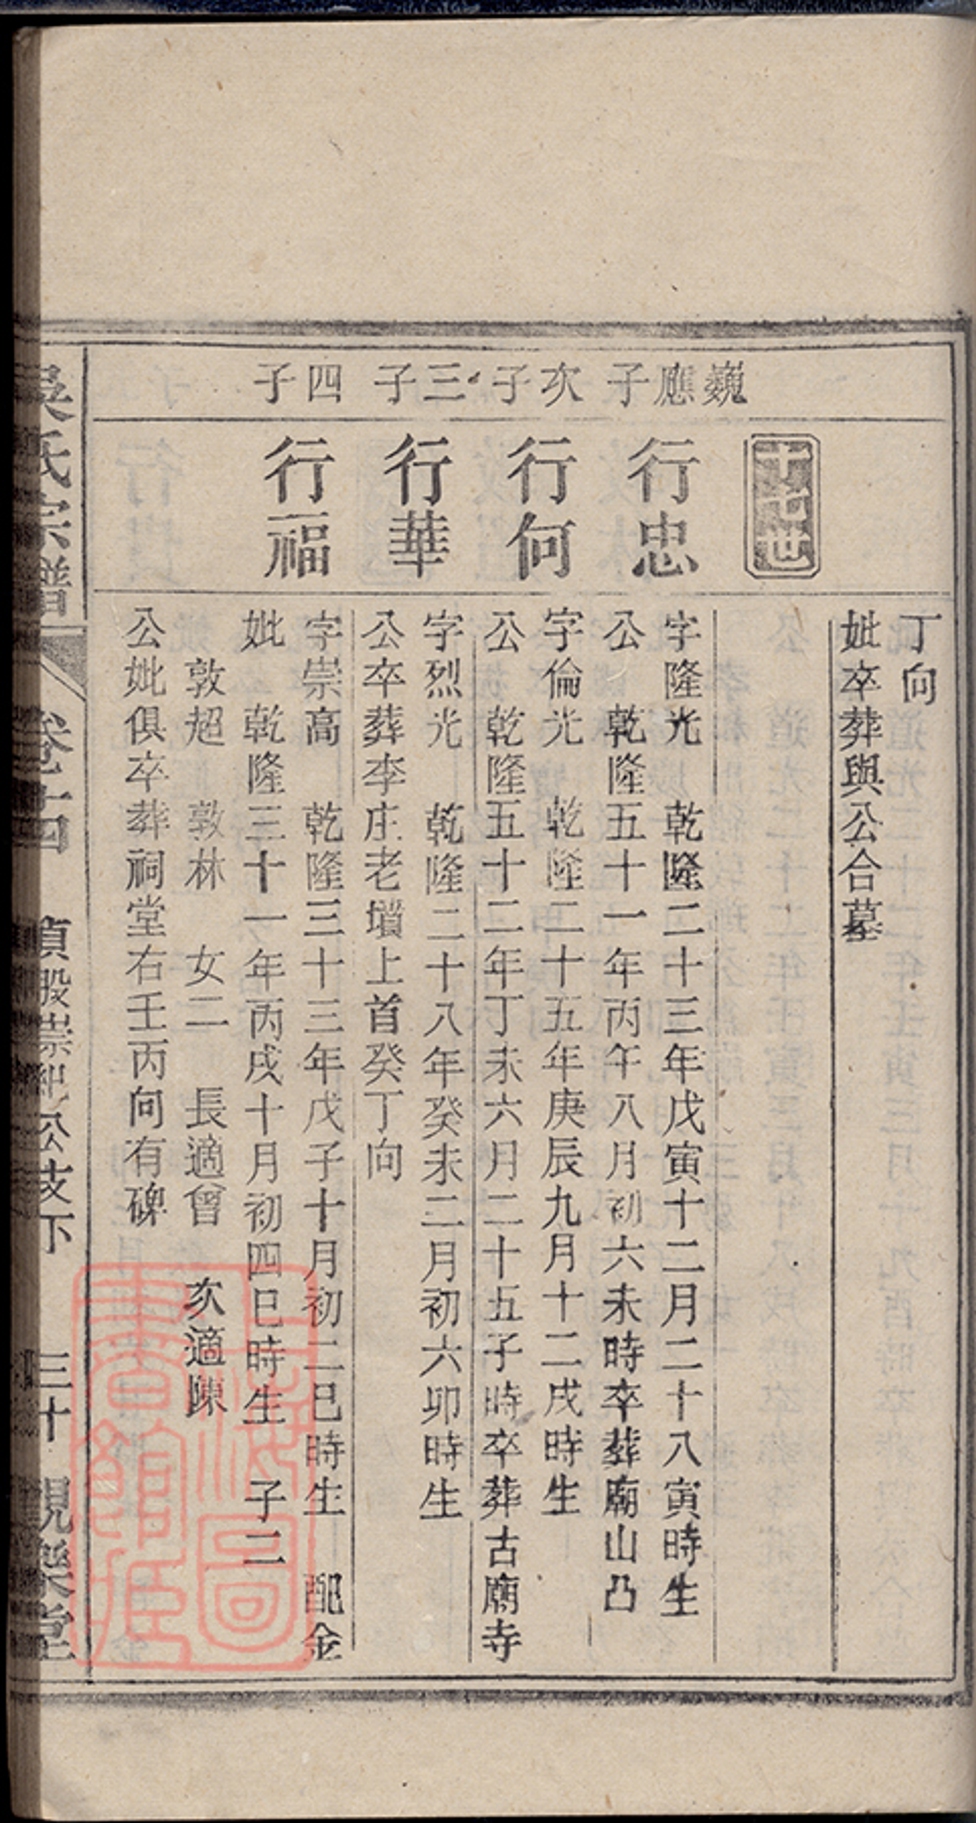 丁向
妣卒葬與公合墓
十七世
巍應子
行忠
字隆光　乾隆二十三年戊寅十二月二十八寅時生
公　乾隆五十一年丙午八月初六未時卒葬廟山凸
次子
行何
字倫光　乾隆二十五年庚辰九月十二戌時生
公　乾隆五十二年丁未六月二十五子時卒葬古廟寺
三子
行華
字烈光　乾隆二十八年癸未二月初六卯時生
公卒葬李庄老墳上首癸丁向
四子
行福
字崇高　乾隆三十三年戊子十月初二巳時生　配金
妣　乾隆三十一年丙戌十月初四巳時生　子二
敦超　敦林　女二　長適曾　次適陳
公妣俱卒葬祠堂右壬丙向有碑
吳氏宗譜　卷十四　貞股崇紀公支下　三十　親樂堂
上海圖書館藏